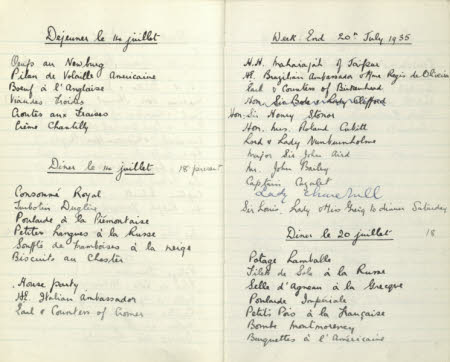 Déjeuner le 14 juillet
Oeufs au Newburg
Pilau de Volaille Americaine
Boeuf à l'Anglaise
Viandes Froides
Croutes aux Fraises
Crème Chantilly
Dîner le 14 juillet 18 present
Consommé Royal
Turbotin Dugléré
Poularde à la Piemontaise
Petites Langues à la Russe
Soufflé de Framboises à la neige
Biscuits au Chester
House party
H.E. Italian Ambassador
Earl & Countess of Cromer
Week End 20th July 1935
H.H. Maharajah of
H.E. Brazilian Ambassador & Mme Regis de Oliveira
Earl & Countess of Birkenhead
Hon. Sir & Lady
Hon. Sir Henry Stonor
Hon. Mrs. Roland Cubitt
Lord & Lady Nunburnholme
Major Sir John Aird
Mr. John Bailey
Captain Cazalet
Lady Churchill
Sir Louis, Lady & Miss Greig to dinner Saturday
Dîner le 20 juillet 18
Potage Lamballe
Filets de Sole à la Russe
Selle d'Agneau à la Grecque
Poularde Impériale
Petits Pois à la Française
Bombe Montmorency
Baguettes à l'Americaine